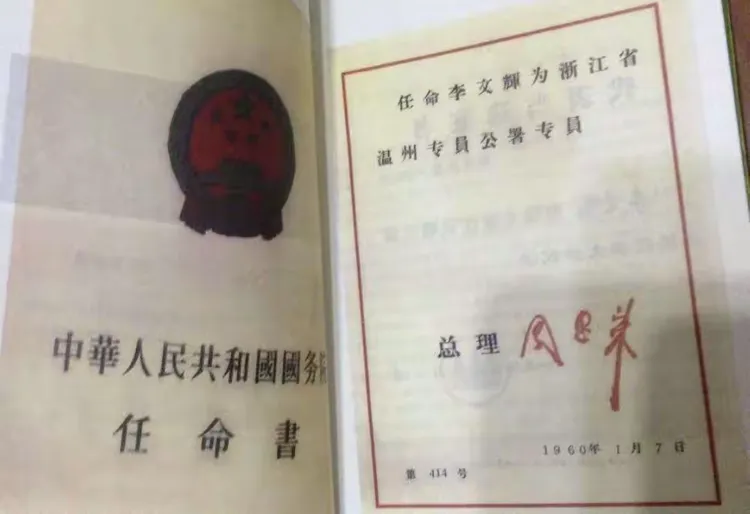 中華人民共和國國务
任命書
任命李文輝为浙江省
温州专員公署专員
总理 周恩来
1960年1月7日
第 414 号